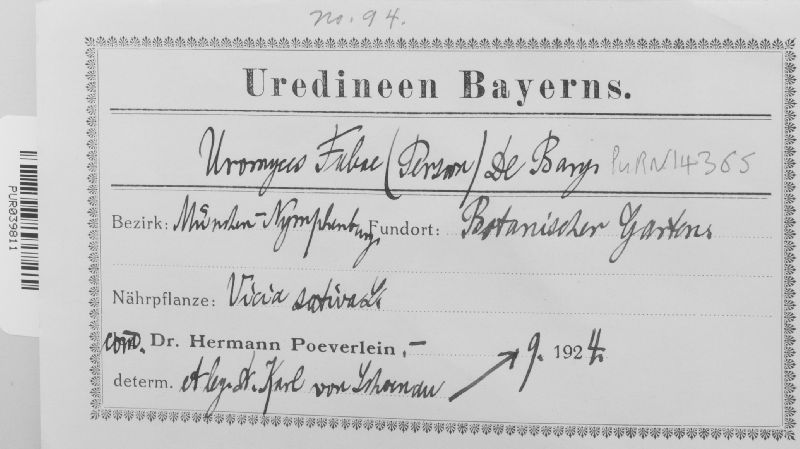 no. 94.
Uredineen Bayerns.
Uromyces Fabae (Persoon) De Bary. PuRN14365
Bezirk: München-Nymphenburg, Fundort: Botanischer Garten.
Nährpflanze: Vicia sativa L.
com. Dr. Hermann Poeverlein,-
9. 1924.
determ. et leg. Dr. Karl von Schoenau
PUR039811